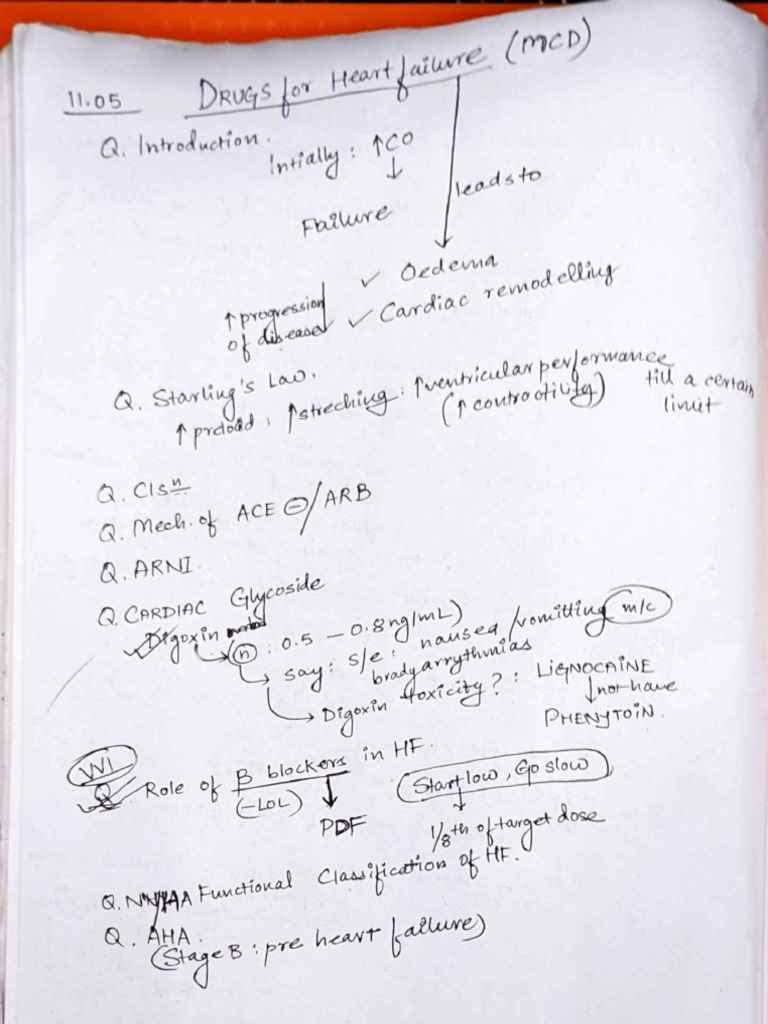 11.05 DRUGS for Heart failure (MCD)
Q. Introduction.
Intially : ↑CO
↓
Failure
leads to
✓ Oedema
✓ Cardiac remodelling
↑ progression
of disease
Q. Starling's Law.
↑ preload : ↑ streching : ↑ ventricular performance
(↑ contractility)
till a certain
limit
Q. Clsn
Q. Mech. of ACE ⊖/ARB
Q. ARNI.
Q. CARDIAC Glycoside
✓ Digoxin
→ (n) : 0.5 – 0.8 ng/mL)
→ say : s/e : nausea /vomitting m/c
bradyarrythmias
→ Digoxin toxicity? : LIGNOCAINE
↓ not have
PHENYTOIN.
VVI
Q. Role of β blockers in HF.
(-LOL)
↓
PDF
(Start low, Go slow)
↓
1/8th of target dose
Q. NYHA Functional Classification of HF.
Q. AHA.
(Stage B : pre heart failure)